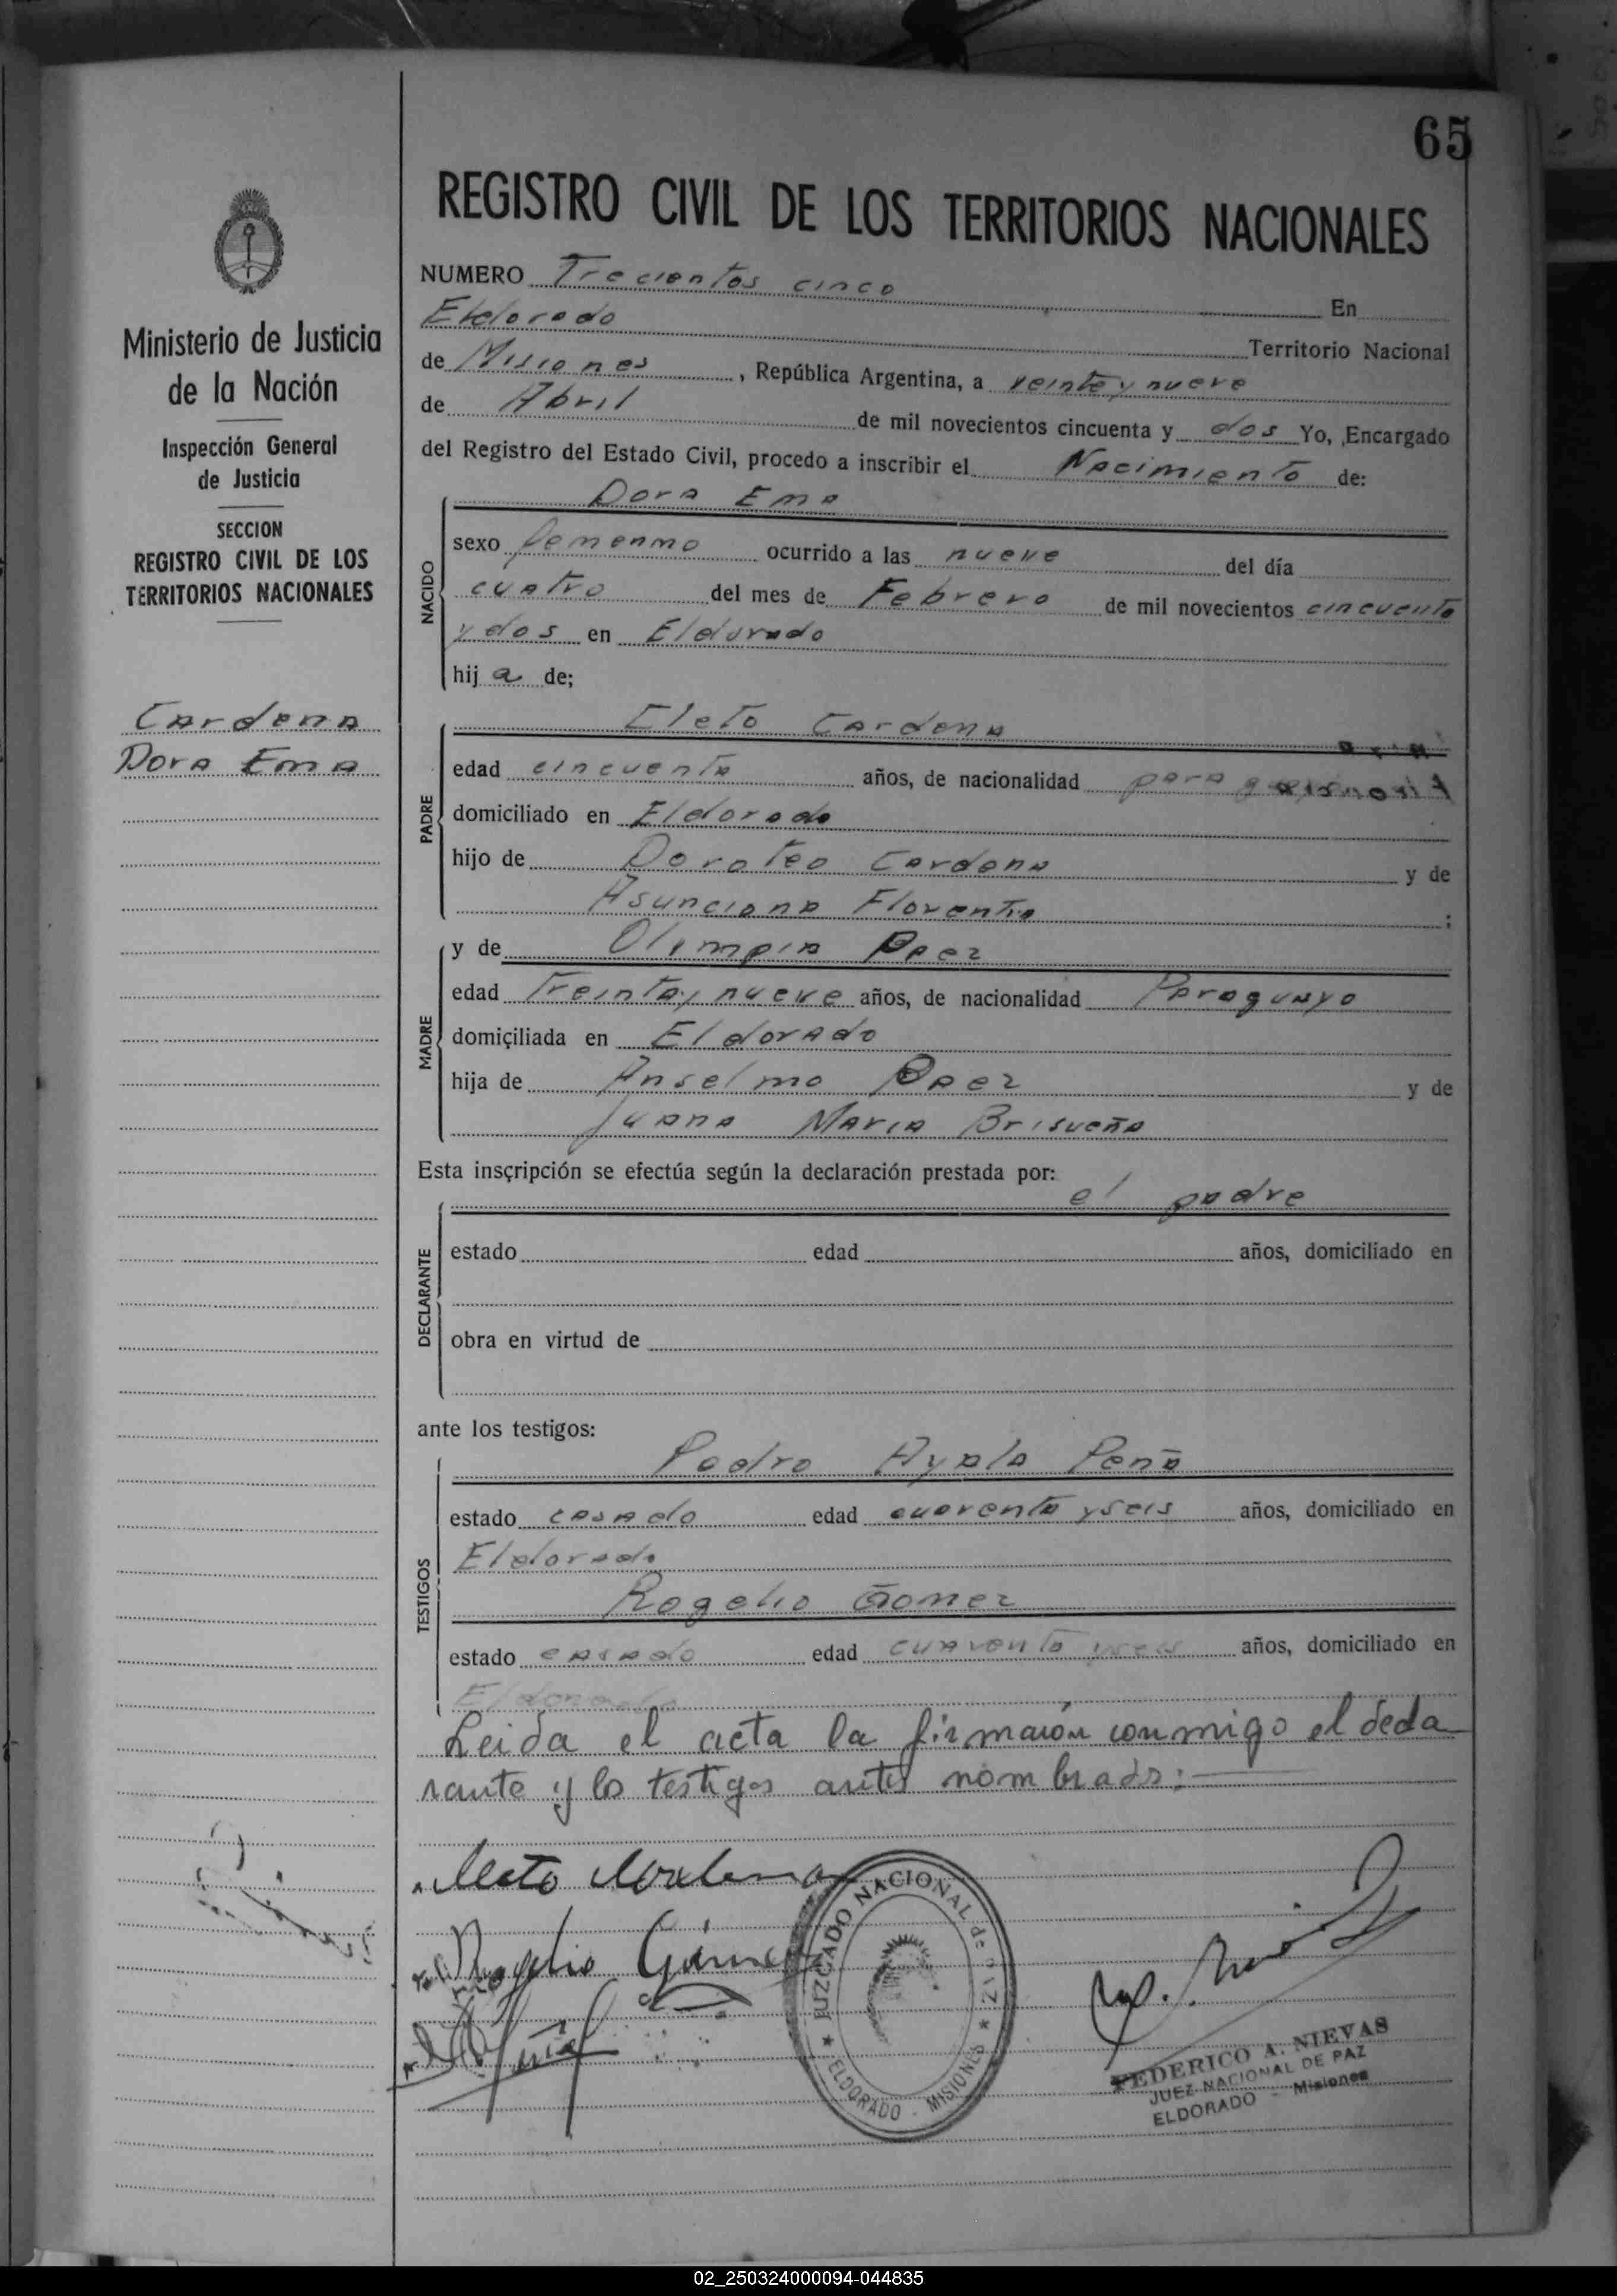 65
REGISTRO CIVIL DE LOS TERRITORIOS NACIONALES
Ministerio de Justicia
de la Nación
Inspección General
de Justicia
SECCION
REGISTRO CIVIL DE LOS
TERRITORIOS NACIONALES
Cardena
Dora Ema
NUMERO Trecientos cinco En
Eldorado Territorio Nacional
de Misiones, República Argentina, a veinte y nueve
de Abril de mil novecientos cincuenta y dos Yo, Encargado
del Registro del Estado Civil, procedo a inscribir el Nacimiento de:
NACIDO
Dora Ema
sexo femenino ocurrido a las nueve del día
cuatro del mes de Febrero de mil novecientos cincuenta
y dos en Eldorado
hija de;
PADRE
Cleto Cardena
edad cincuenta años, de nacionalidad
domiciliado en Eldorado
hijo de Doroteo Cardena y de
Asunciona Florentin;
MADRE
y de Olimpia Paez
edad Treinta y nueve años, de nacionalidad Paraguayo
domiciliada en Eldorado
hija de Anselmo Paez y de
Juana Maria Brisueña
Esta inscripción se efectúa según la declaración prestada por:
DECLARANTE
el padre
estado edad años, domiciliado en
obra en virtud de
ante los testigos:
TESTIGOS
Pedro Ayala Peña
estado casado edad cuarenta y seis años, domiciliado en
Eldorado
Rogelio Gomez
estado casado edad cuarenta y seis años, domiciliado en
Eldorado
Leida el acta la firmarón conmigo el decla
rante y los testigos antes nombrads:
Cleto Cardena
Rogelio Gómez
JUZGADO NACIONAL de PAZ
★ ELDORADO - MISIONES ★
FEDERICO A. NIEVAS
JUEZ NACIONAL DE PAZ
ELDORADO - Misiones
02_250324000094-044835